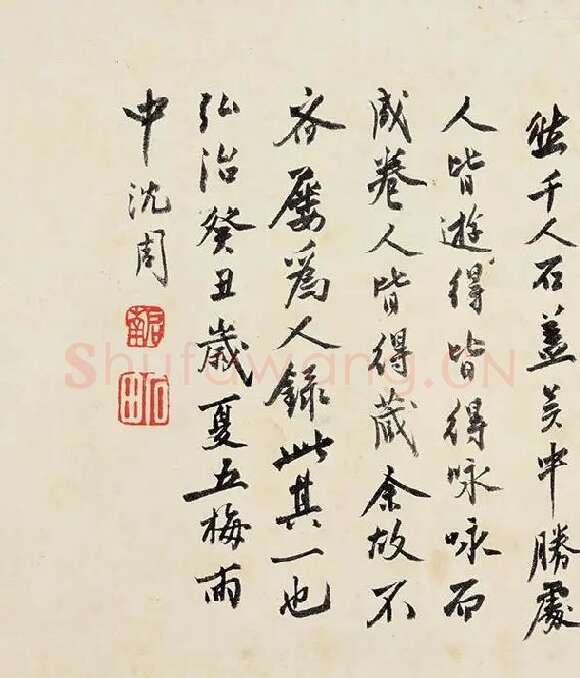 然千人石蓋吳中勝處
人皆遊得皆得咏咏而
成卷人皆得藏余故不
吝屢為人錄此其一也
弘治癸丑歲夏五梅雨
中沈周
啟南
石田
Shufawang.CN